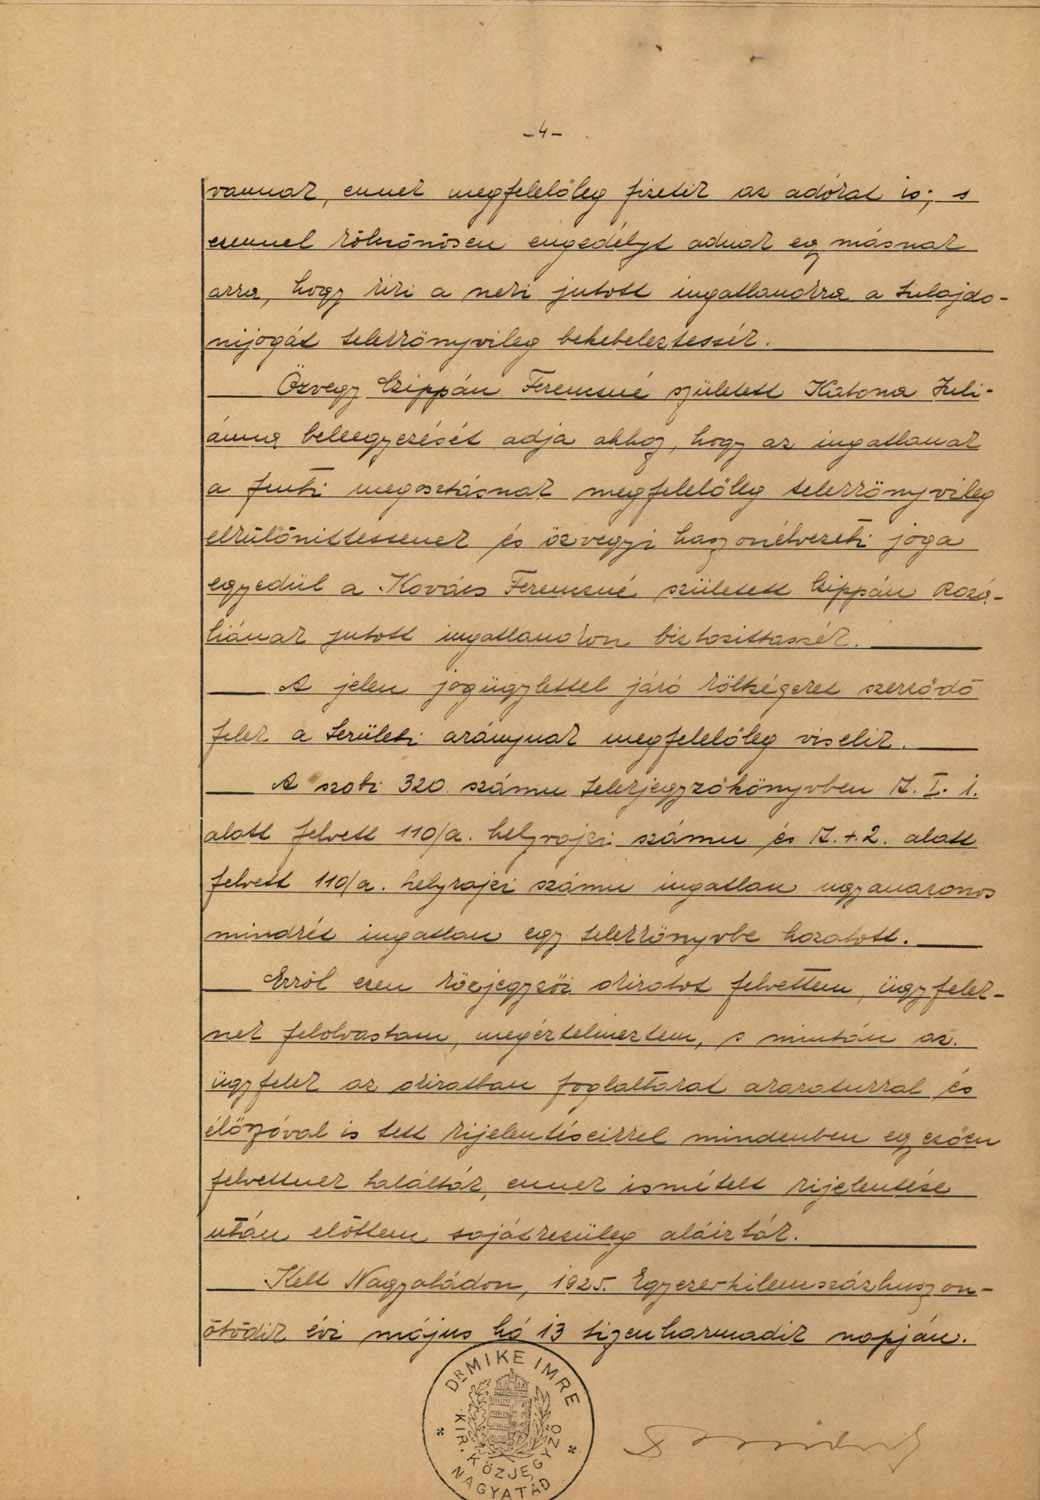 -4-
vannak, ennek megfelelőleg fizetik az adókat is; s
ezennel kölcsönösen engedélyt adnak egymásnak
arra, hogy kiki a neki jutott ingatlanokra a tulajdo-
nijogát telekkönyvileg bekebeleztessék.
Özvegy Czippán Ferencné született Katona Juli-
ánna beleegyezését adja ahhoz, hogy az ingatlanok
a fenti megosztásnak megfelelőleg telekkönyvileg
elkülönittessenek és özvegyi haszonélvezeti joga
egyedül a Kovács Ferencné született Czippán Rozá-
liának jutott ingatlanokon biztosittassék.
A jelen jogügylettel járó költségeket szerződő
felek a területi aránynak megfelelőleg viselik.
A szobi 320 számu telekjegyzőkönyvben A. I. 1.
alatt felvett 110/a. helyrajzi számu és A. + 2. alatt
felvett 110/a. helyrajzi számu ingatlan ugyanazonos
mindkét ingatlan egy telekkönyvbe hozatott.
Erről ezen közjegyzői okiratot felvettem, ügyfelek-
nek felolvastam, megértelmeztem, s miután az
ügyfelek az okiratban foglaltakat akaratukkal és
élőszóval is tett kijelentéseikkel mindenben egyezően
felvettnek találták, ennek ismételt kijelentése
után előttem sajátkezüleg aláirták.
Kelt Nagyatádon, 1925. Egyezerkilencszázhuszon-
ötödik évi május hó 13 tizenharmadik napján.
Dr MIKE IMRE
KIR. KÖZJEGYZŐ
NAGYATÁD